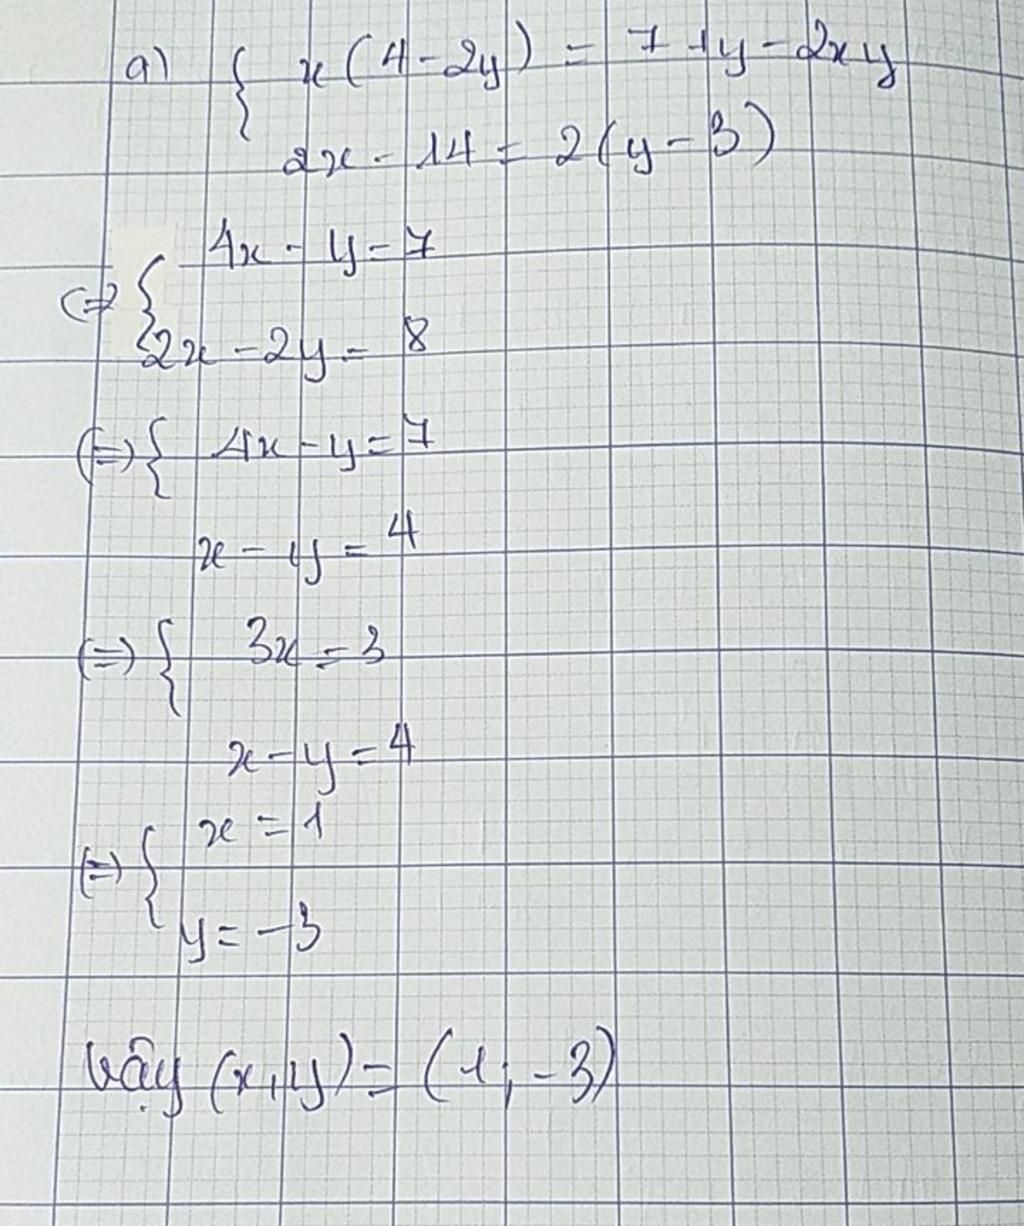 a) { x(4-2y) = 7+y-2xy
2x-14 = 2(y-3)
(=) { 4x-y=7
2x-2y=8
(=) { 4x-y=7
x-y=4
(=) { 3x=3
x-y=4
(=) { x=1
y=-3
Vậy (x,y)=(1;-3)